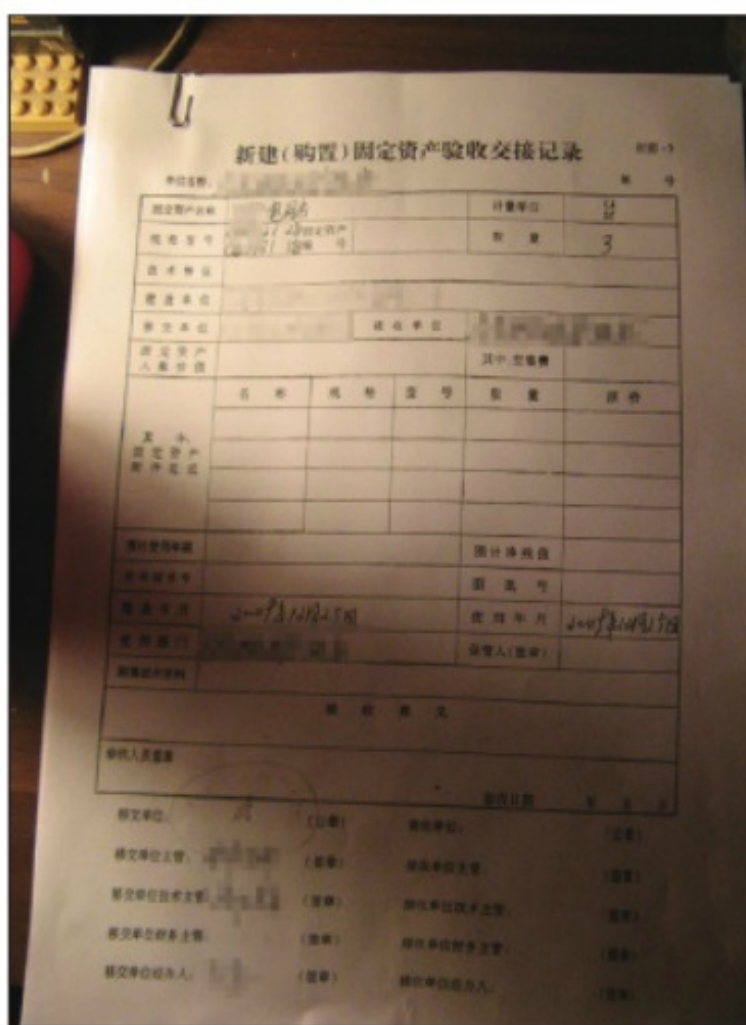 新建(购置)固定资产验收交接记录
单位名称: 编 号
固定资产名称 计量单位 台
规格型号 固定资产编号 数量 3
技术特征
建造单位
移交单位 接收单位
固定资产入账价值 其中:安装费
名称 规格 型号 数量 原价
其中:固定资产附件
预计使用年限 预计净残值
图纸号
建造年月 2009年12月25日 使用年月 2009年12月25日
使用部门 保管人(签章)
附属技术资料
验收意见
验收人员签章
验收日期 年 月 日
移交单位: (公章) 接收单位: (公章)
移交单位主管: (签章) 接收单位主管: (签章)
移交单位技术主管: (签章) 接收单位技术主管: (签章)
移交单位财务主管: (签章) 接收单位财务主管: (签章)
移交单位经办人: (签章) 接收单位经办人: (签章)